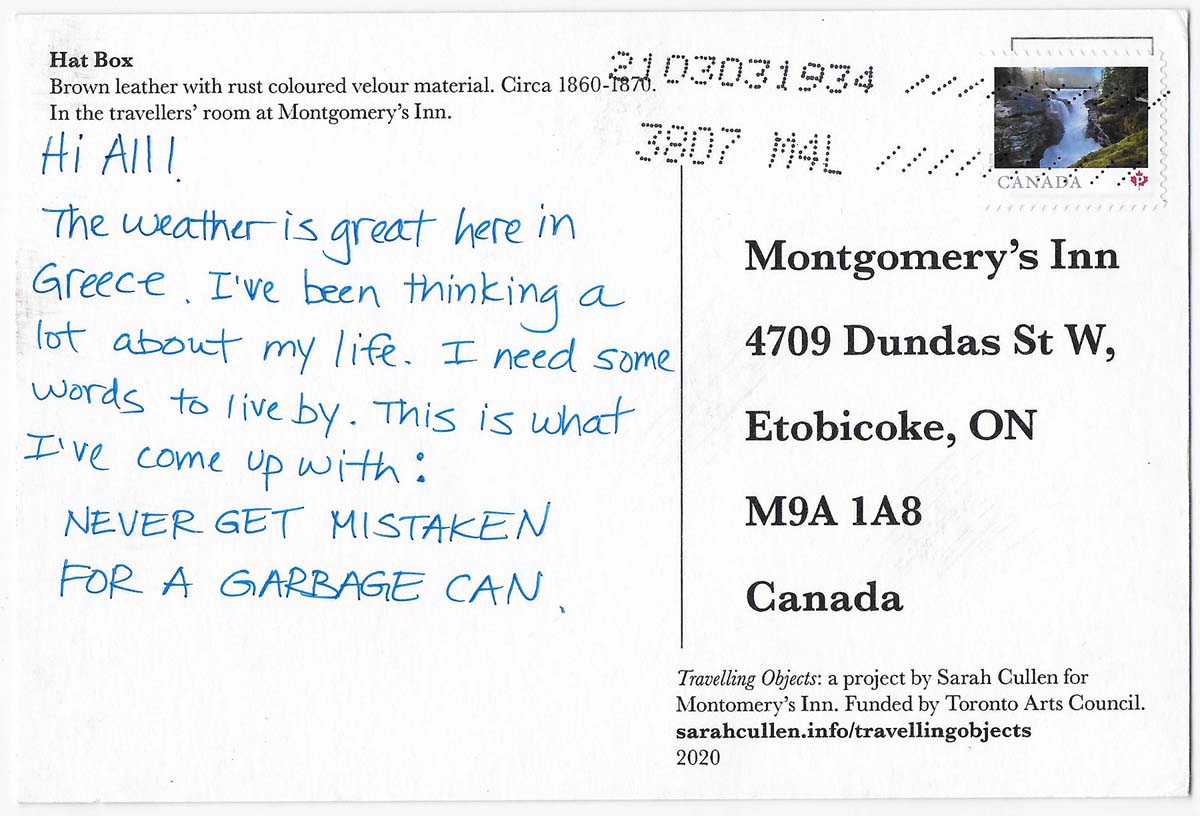 Hat Box
Brown leather with rust coloured velour material. Circa 1860-1870.
In the travellers' room at Montgomery's Inn.
2103031934
3807 M4L
CANADA
Hi All!
The weather is great here in
Greece. I've been thinking a
lot about my life. I need some
words to live by. This is what
I've come up with:
NEVER GET MISTAKEN
FOR A GARBAGE CAN.
Montgomery's Inn
4709 Dundas St W,
Etobicoke, ON
M9A 1A8
Canada
Travelling Objects: a project by Sarah Cullen for
Montomery's Inn. Funded by Toronto Arts Council.
sarahcullen.info/travellingobjects
2020